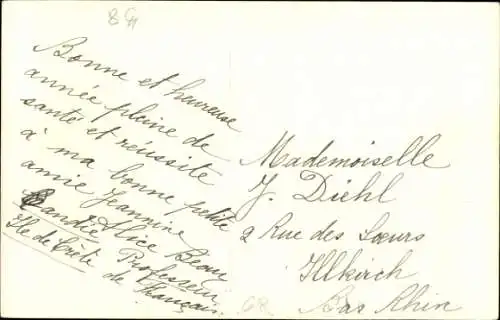 Bonne et heureuse
année pleine de
santé et réussite
à ma bonne petite
amie Jeannine
Alice Beauy
Professeur
de Français.
Ile de Crète
Mademoiselle
J. Diehl
2 Rue des Sœurs
Illkirch
Bas Rhin
68